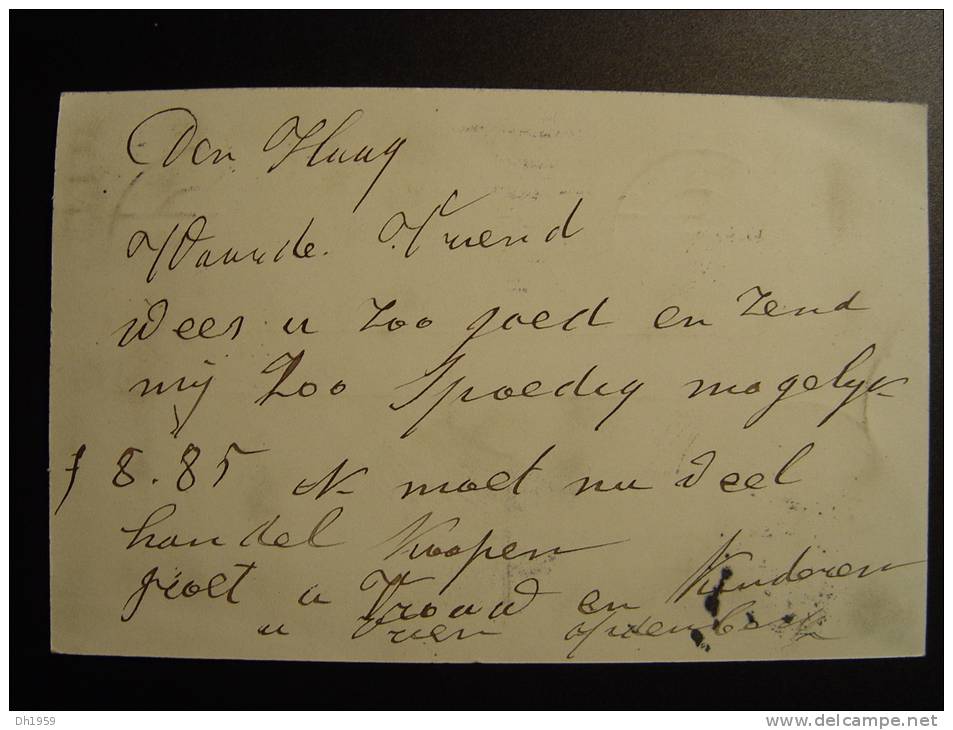 Den Haag
Waarde. Vriend
Wees u zoo goed en zend
mij zoo Spoedig mogelijk
f 8.85 ik moet nu veel
handel Koopen
groet u Vrouw en Kinderen
u Vrien
Dh1959
www.delcampe.net